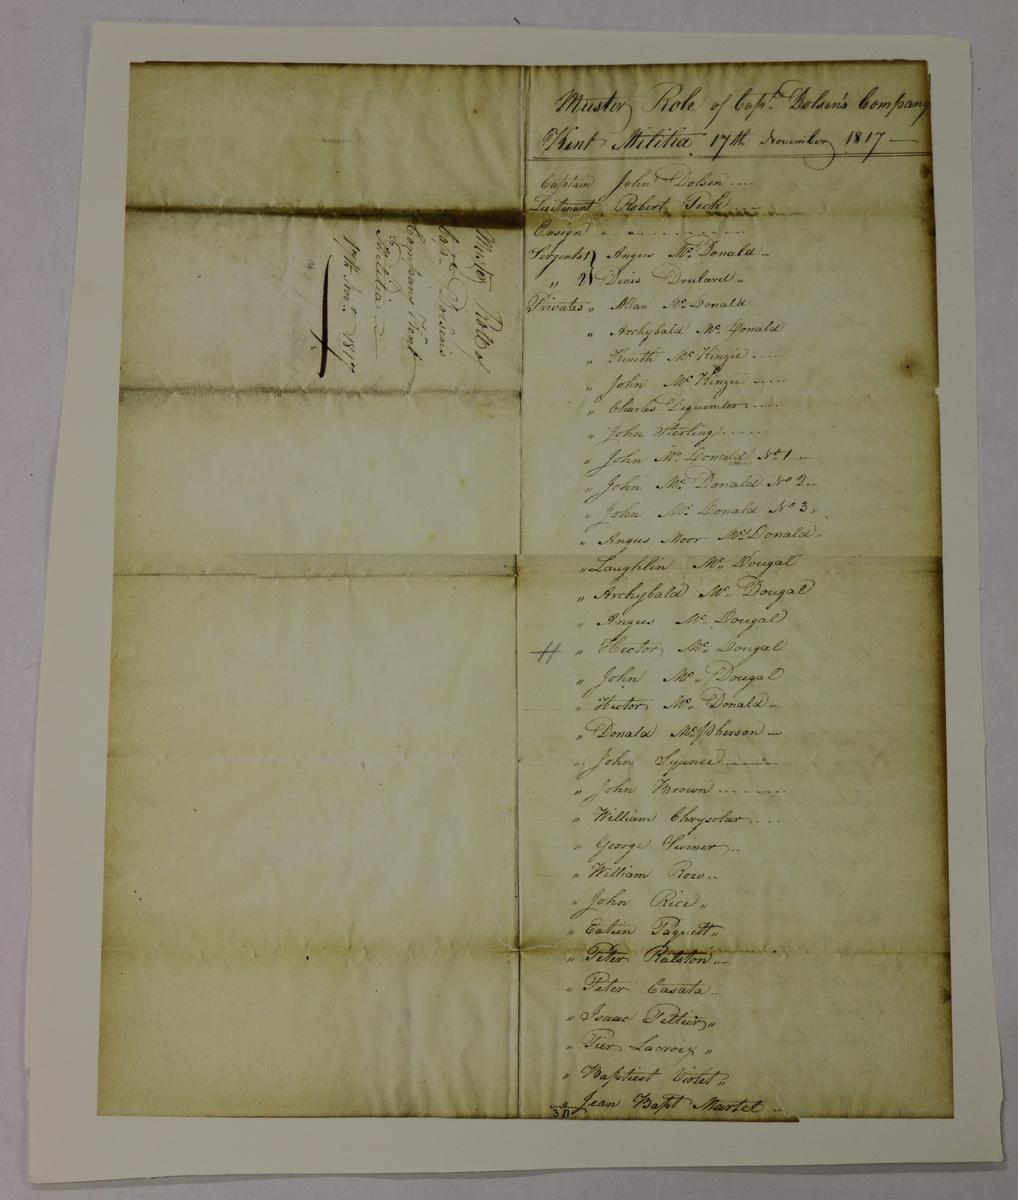 Muster Role of Capt. Dolsen's Company
Kent Militia 17th November 1817
Captain John Dolsen ....
Lieutenant Robert Peck
Ensign " "
Sergents 1 Angus Mc. Donald
" 2 Denis Drulard "
Privates " Allan Mc. Donald
" Archybald Mc. Donald
" Keneth Mc Kinzie .....
" John Mc Kinzie .....
" Charles Dequender ....
" John Sterling ......
" John Mc. Donald No. 1
" John Mc. Donald No 2
" John Mc. Donald No 3 "
" Angus Moor Mc. Donald "
" Laughlin Mc. Dougal
" Archybald Mc. Dougal
" Angus Mc. Dougal
" Hector Mc. Dougal
" John Mc. Dougal
" Hector Mc. Donald
" Donald Mc. Pherson
" John
" John Brown ........
" William Chrysolar ...
" George
" William Row ..
" John Rice "
" Eatien Paquett "
" Peter Ralston "
" Peter Casata ..
" Isaac Peltier "
" Pier Lacroix "
" Baptiest Violet "
Jean Bapt Martel
Muster Roll of
Capt. Dolsen's
Company Kent
Militia
17th Novr. 1817